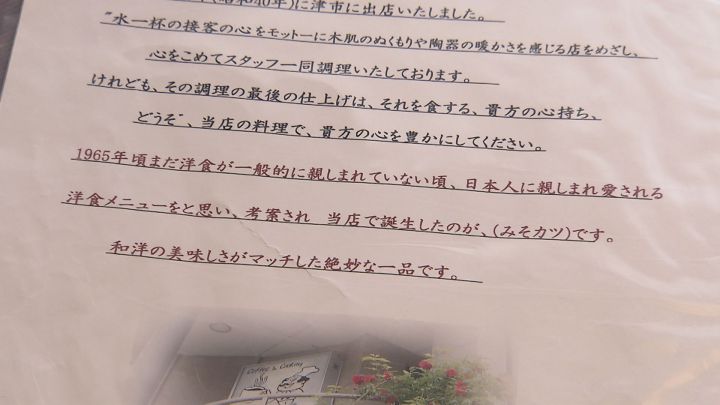 (昭和40年)に津市に出店いたしました。
"水一杯の接客の心をモットーに木肌のぬくもりや陶器の暖かさを感じる店をめざし、
心をこめてスタッフ一同調理いたしております。
けれども、その調理の最後の仕上げは、それを食する、貴方の心持ち、
どうぞ"、当店の料理で、貴方の心を豊かにしてください。
1965年頃まだ洋食が一般的に親しまれていない頃、日本人に親しまれ愛される
洋食メニューをと思い、考案され 当店で誕生したのが、(みそカツ)です。
和洋の美味しさがマッチした絶妙な一品です。
Coffee & Cooking